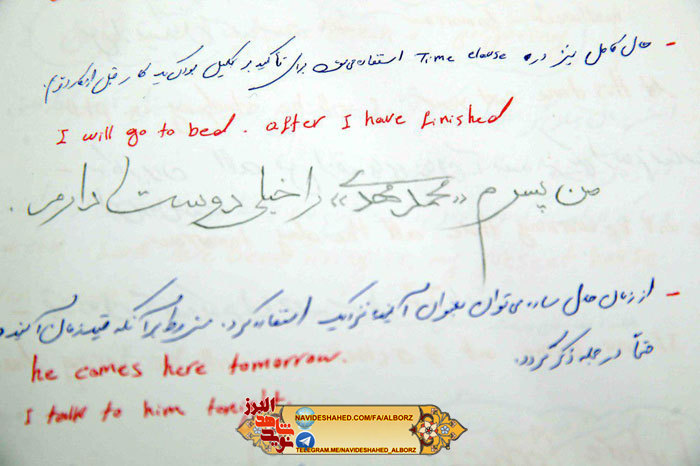 - حال کامل نیز در Time clause استفاده می‌شود برای تأکید بر تکمیل شدن یک کار قبل از کار دوم.
I will go to bed. after I have finished
من پسرم «محمدمهدی» را خیلی دوست دارم.
- از زمان حال ساده می‌توان بعنوان آینده نزدیک استفاده کرد. مشروط بر آنکه قید زمان آینده
حتماً در جمله ذکر گردد.
he comes here tomorrow.
I talk to him tonight.
نوید شاهد البرز
NAVIDESHAHED.COM/FA/ALBORZ
TELEGRAM.ME/NAVIDESHAHED_ALBORZ